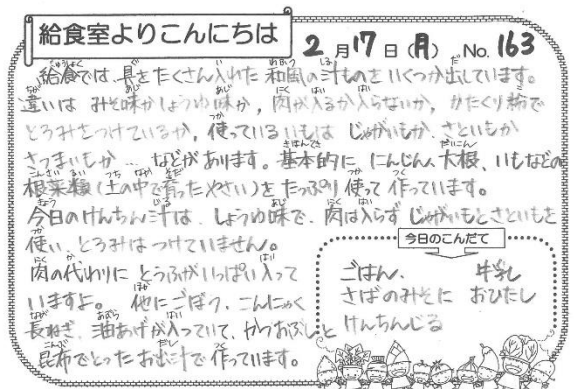 給食室よりこんにちは
2月17日(月) No.163
給食では、具をたくさん入れた和風の汁ものをいくつか出しています。
違いは みそ味かしょうゆ味か、肉が入るか入らないか、かたくり粉で
とろみをつけているか、使っているいもは じゃがいもか、さといもか
さつまいもか… などがあります。基本的に にんじん、大根、いもなどの
根菜類(土の中で育ったやさい)を たっぷり 使って 作っています。
今日のけんちん汁は、しょうゆ味で、肉は入らず じゃがいもとさといもを
使い、とろみはつけていません。
肉の代わりに とうふがいっぱい入って
いますよ。 他にごぼう、こんにゃく
長ねぎ、油あげが入っていて、かつおぶしと
昆布でとったお出汁で作っています。
今日のこんだて
ごはん、 牛乳
さばのみそに おひたし
けんちんじる